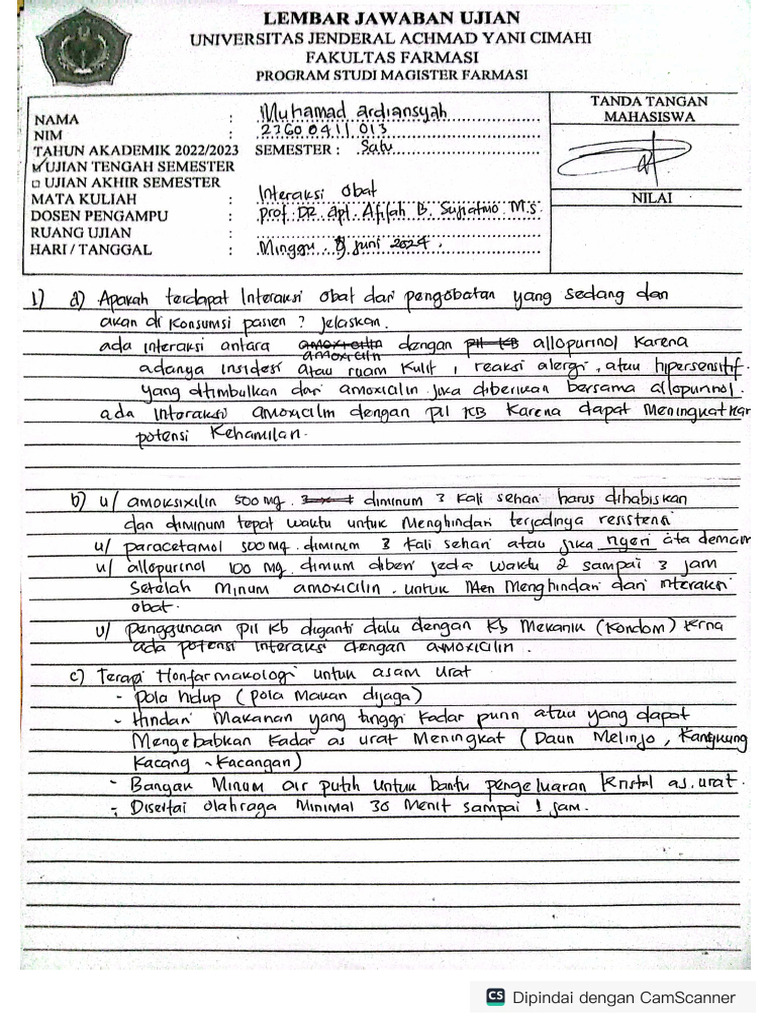 LEMBAR JAWABAN UJIAN
UNIVERSITAS JENDERAL ACHMAD YANI CIMAHI
FAKULTAS FARMASI
PROGRAM STUDI MAGISTER FARMASI
NAMA : Muhamad ardiansyah
NIM : 23600411013
TAHUN AKADEMIK 2022/2023 SEMESTER : Satu
UJIAN TENGAH SEMESTER
UJIAN AKHIR SEMESTER
MATA KULIAH : Interaksi Obat
DOSEN PENGAMPU : Prof. DR. apt. Afifah B. Sujiatmo M.S.
RUANG UJIAN :
HARI / TANGGAL : Minggu, 9 Juni 2024.
TANDA TANGAN
MAHASISWA
NILAI
1) a) Apakah terdapat Interaksi Obat dari pengobatan yang sedang dan
akan di konsumsi pasien ? Jelaskan.
ada interaksi antara amoxicilin dengan pil KB allopurinol karena
amoxicilin
adanya insidesi atau ruam kulit, reaksi alergi, atau hipersensitif
yang ditimbulkan dari amoxicalin jika diberikan bersama allopurinol.
ada Interaksi amoxicalin dengan pil KB karena dapat Meningkatkan
potensi Kehamilan.
b) u/ amoksixilin 500 mg. diminum 3 kali sehari harus dihabiskan
dan diminum tepat waktu untuk Menghindari terjadinya resistensi
u/ paracetamol 500 mg. diminum 3 kali sehari atau jika ngeri ata demam
u/ allopurinol 100 mg. dimum diberi jeda waktu 2 sampai 3 jam
Setelah Minum amoxicilin. untuk Men Menghindari dari interaksi
obat.
u/ penggunaan pil Kb diganti dulu dengan Kb Mekanik (Kondom) Krna
ada potensi Interaksi dengan amoxicilin.
c) Terapi Nonfarmakologi untuk asam urat
- Pola hidup (Pola Makan dijaga)
- Hindari Makanan yang tinggi Kadar purin atau yang dapat
Mengebabkan Kadar as urat Meningkat (Daun Melinjo, Kangkung
Kacang - Kacangan)
- Bangak Minum air putih untuk bantu pengeluaran Kristal as. urat.
- Disertai olahraga Minimal 30 Menit sampai 1 jam.
CS Dipindai dengan CamScanner